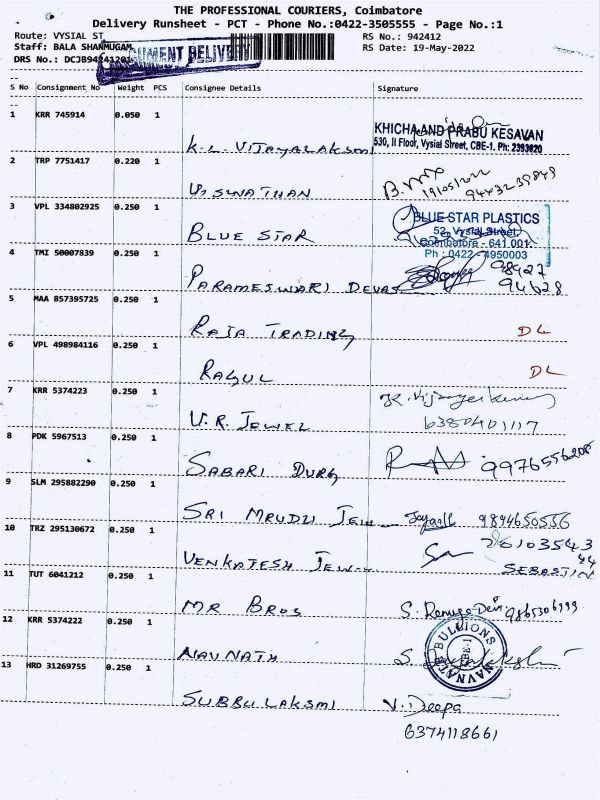 THE PROFESSIONAL COURIERS, Coimbatore
Delivery Runsheet - PCT - Phone No.:0422-3505555 - Page No.:1
Route: VYSIAL ST RS No.: 942412
Staff: BALA SHANMUGAM RS Date: 19-May-2022
DRS No.: DCJB94241201
S No Consignment No Weight PCS Consignee Details Signature
1 KRR 745914 0.050 1
K.L. VIJAYALAKSMI
KHICHA AND PRABU KESAVAN
530, II Floor, Vysial Street, CBE-1. Ph: 2393620
2 TRP 7751417 0.220 1
VISWNATHAN
19/05/2022
9443239849
3 VPL 334802925 0.250 1
BLUE STAR
BLUE STAR PLASTICS
52, Vysial Street,
Coimbatore - 641 001.
Ph : 0422 - 4950003
4 TMI 50007839 0.250 1
PARAMESWARI DEVAS
98427
94628
5 MAA 857395725 0.250 1
RAJA TRADING
DL
6 VPL 498984116 0.250 1
RAGUL
DL
7 KRR 5374223 0.250 1
V.R. JEWEL
6380401117
8 PDK 5967513 0.250 1
SABARI DURG
9976556208
9 SLM 295882290 0.250 1
SRI MRUDU JEW
9894650556
10 TRZ 295130672 0.250 1
VENKATESH JEW
SEBASTIN
11 TUT 6041212 0.250 1
MR BROS
S. Renuga Devi
12 KRR 5374222 0.250 1
NAVNATH
NAVNATH BULLIONS
CBE-1
13 HRD 31269755 0.250 1
SUBBULAKSMI
V. Deepa
6374118661